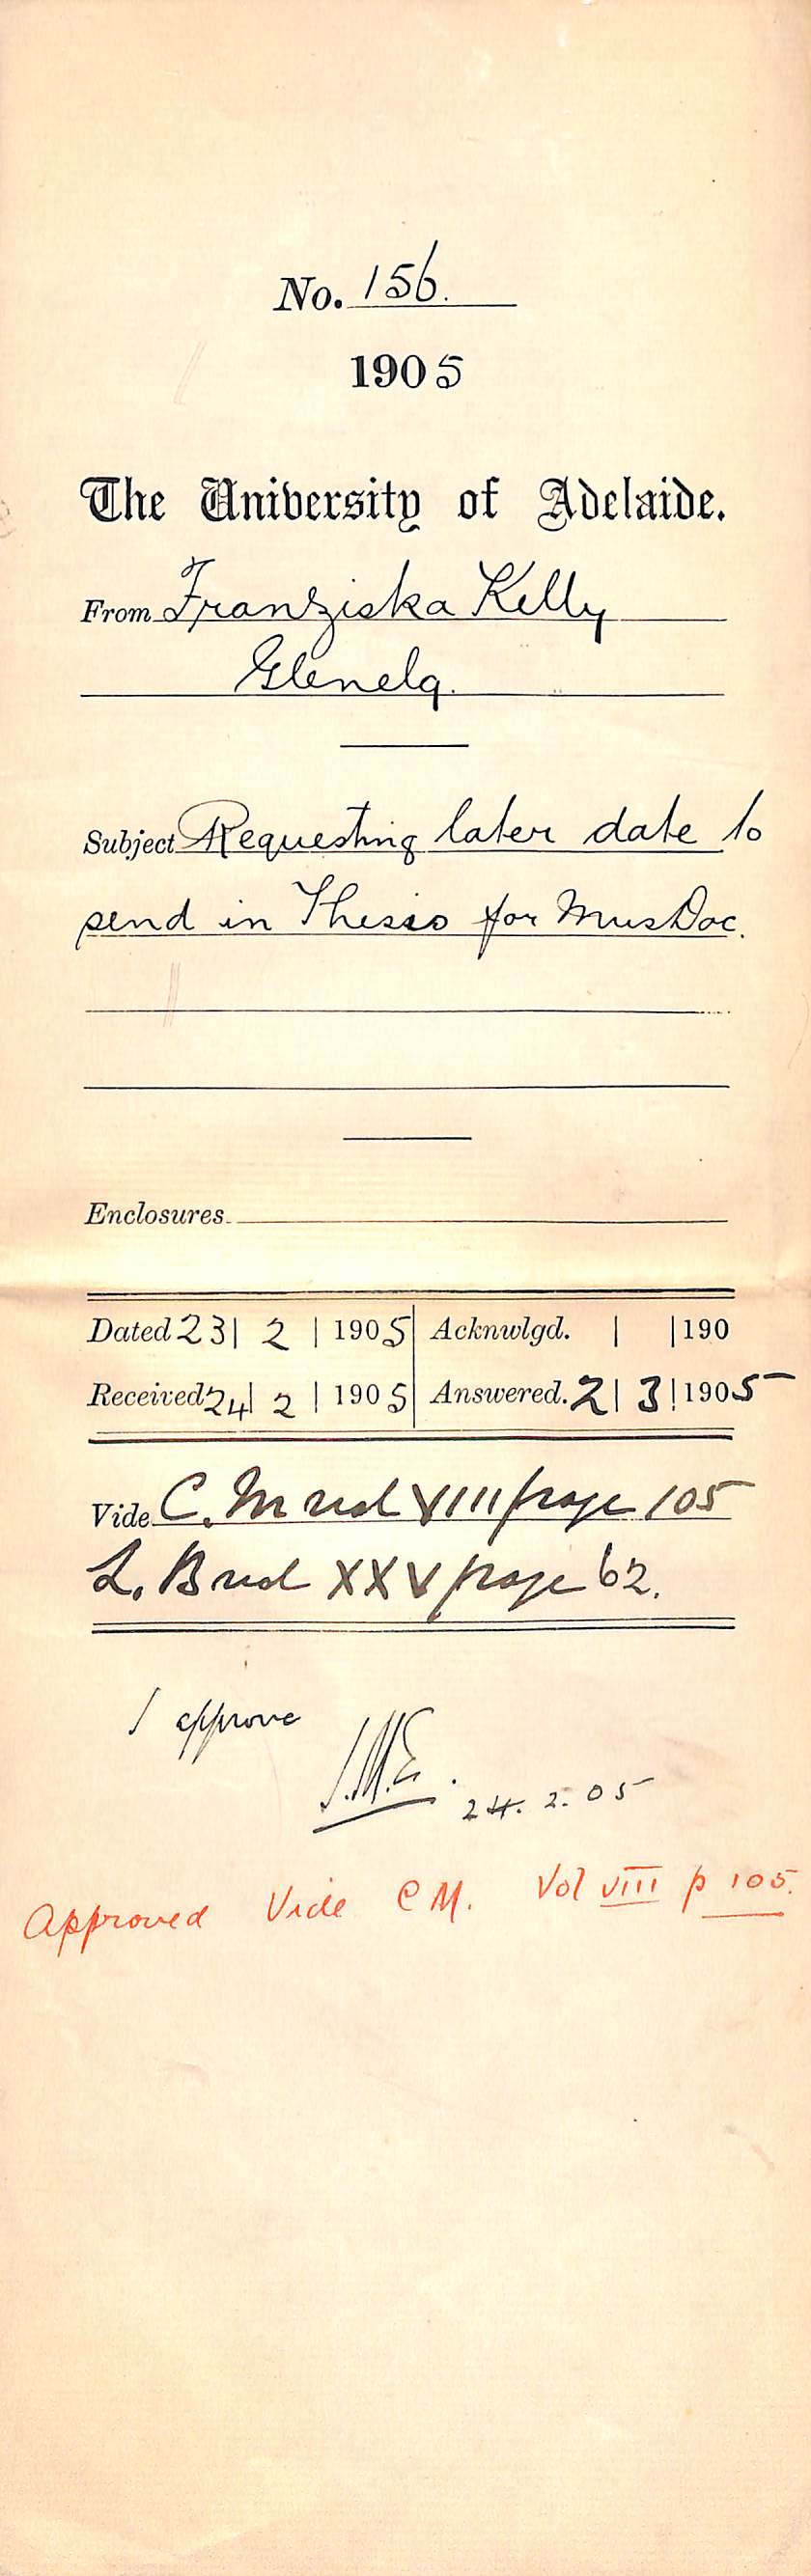 No. 156.
1905
The University of Adelaide.
From Franziska Kelly
Glenelg.
Subject Requesting later date to
send in Thesis for MusDoc.
Enclosures
Dated 23 | 2 | 1905 Acknwlgd. | | 190
Received 24 | 2 | 1905 Answered. 2 | 3 | 1905
Vide C. M vol VIII page 105
L. B vol XXV page 62.
I approve
24. 2. 05
Approved Vide C M. Vol VIII p 105.